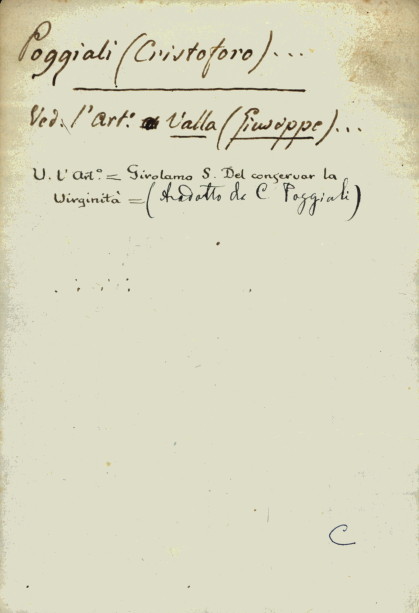 Poggiali (Cristoforo)...
Ved. l'Art.° Valla (Giuseppe)...
V. l'Art.° = Girolamo S. Del conservar la
Virginità = (Tradotto da C Poggiali)
C